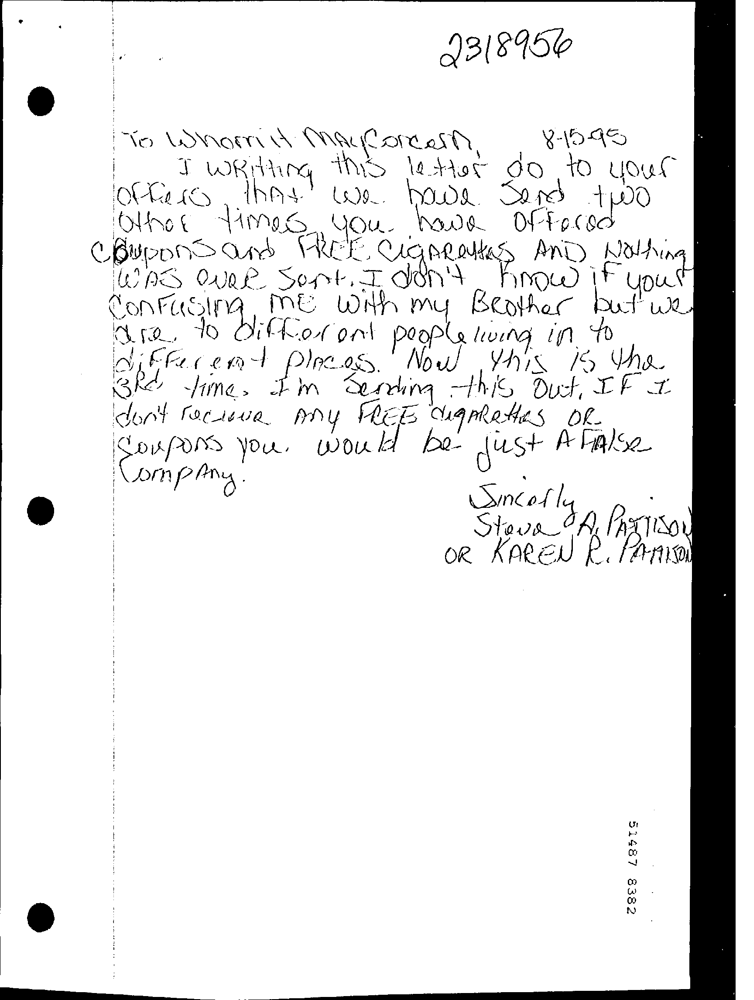 2318956
To Whom it May Concern, 8-15-95
I writting this letter do to your
offers that we have send two
other times you have offered
coupons and FREE Cigarettes AND Nothing
WAS ever sent. I don't know if your
confusing ME with my Brother but we
are to different people living in to
different places. Now this is the
3Rd time I'm sending this out. IF I
don't recieve ANY FREE cigarettes OR
coupons you would be just A False
Company.
Sincerly
Steve A. PATTISON
OR KAREN R. PATTISON
51487 8382